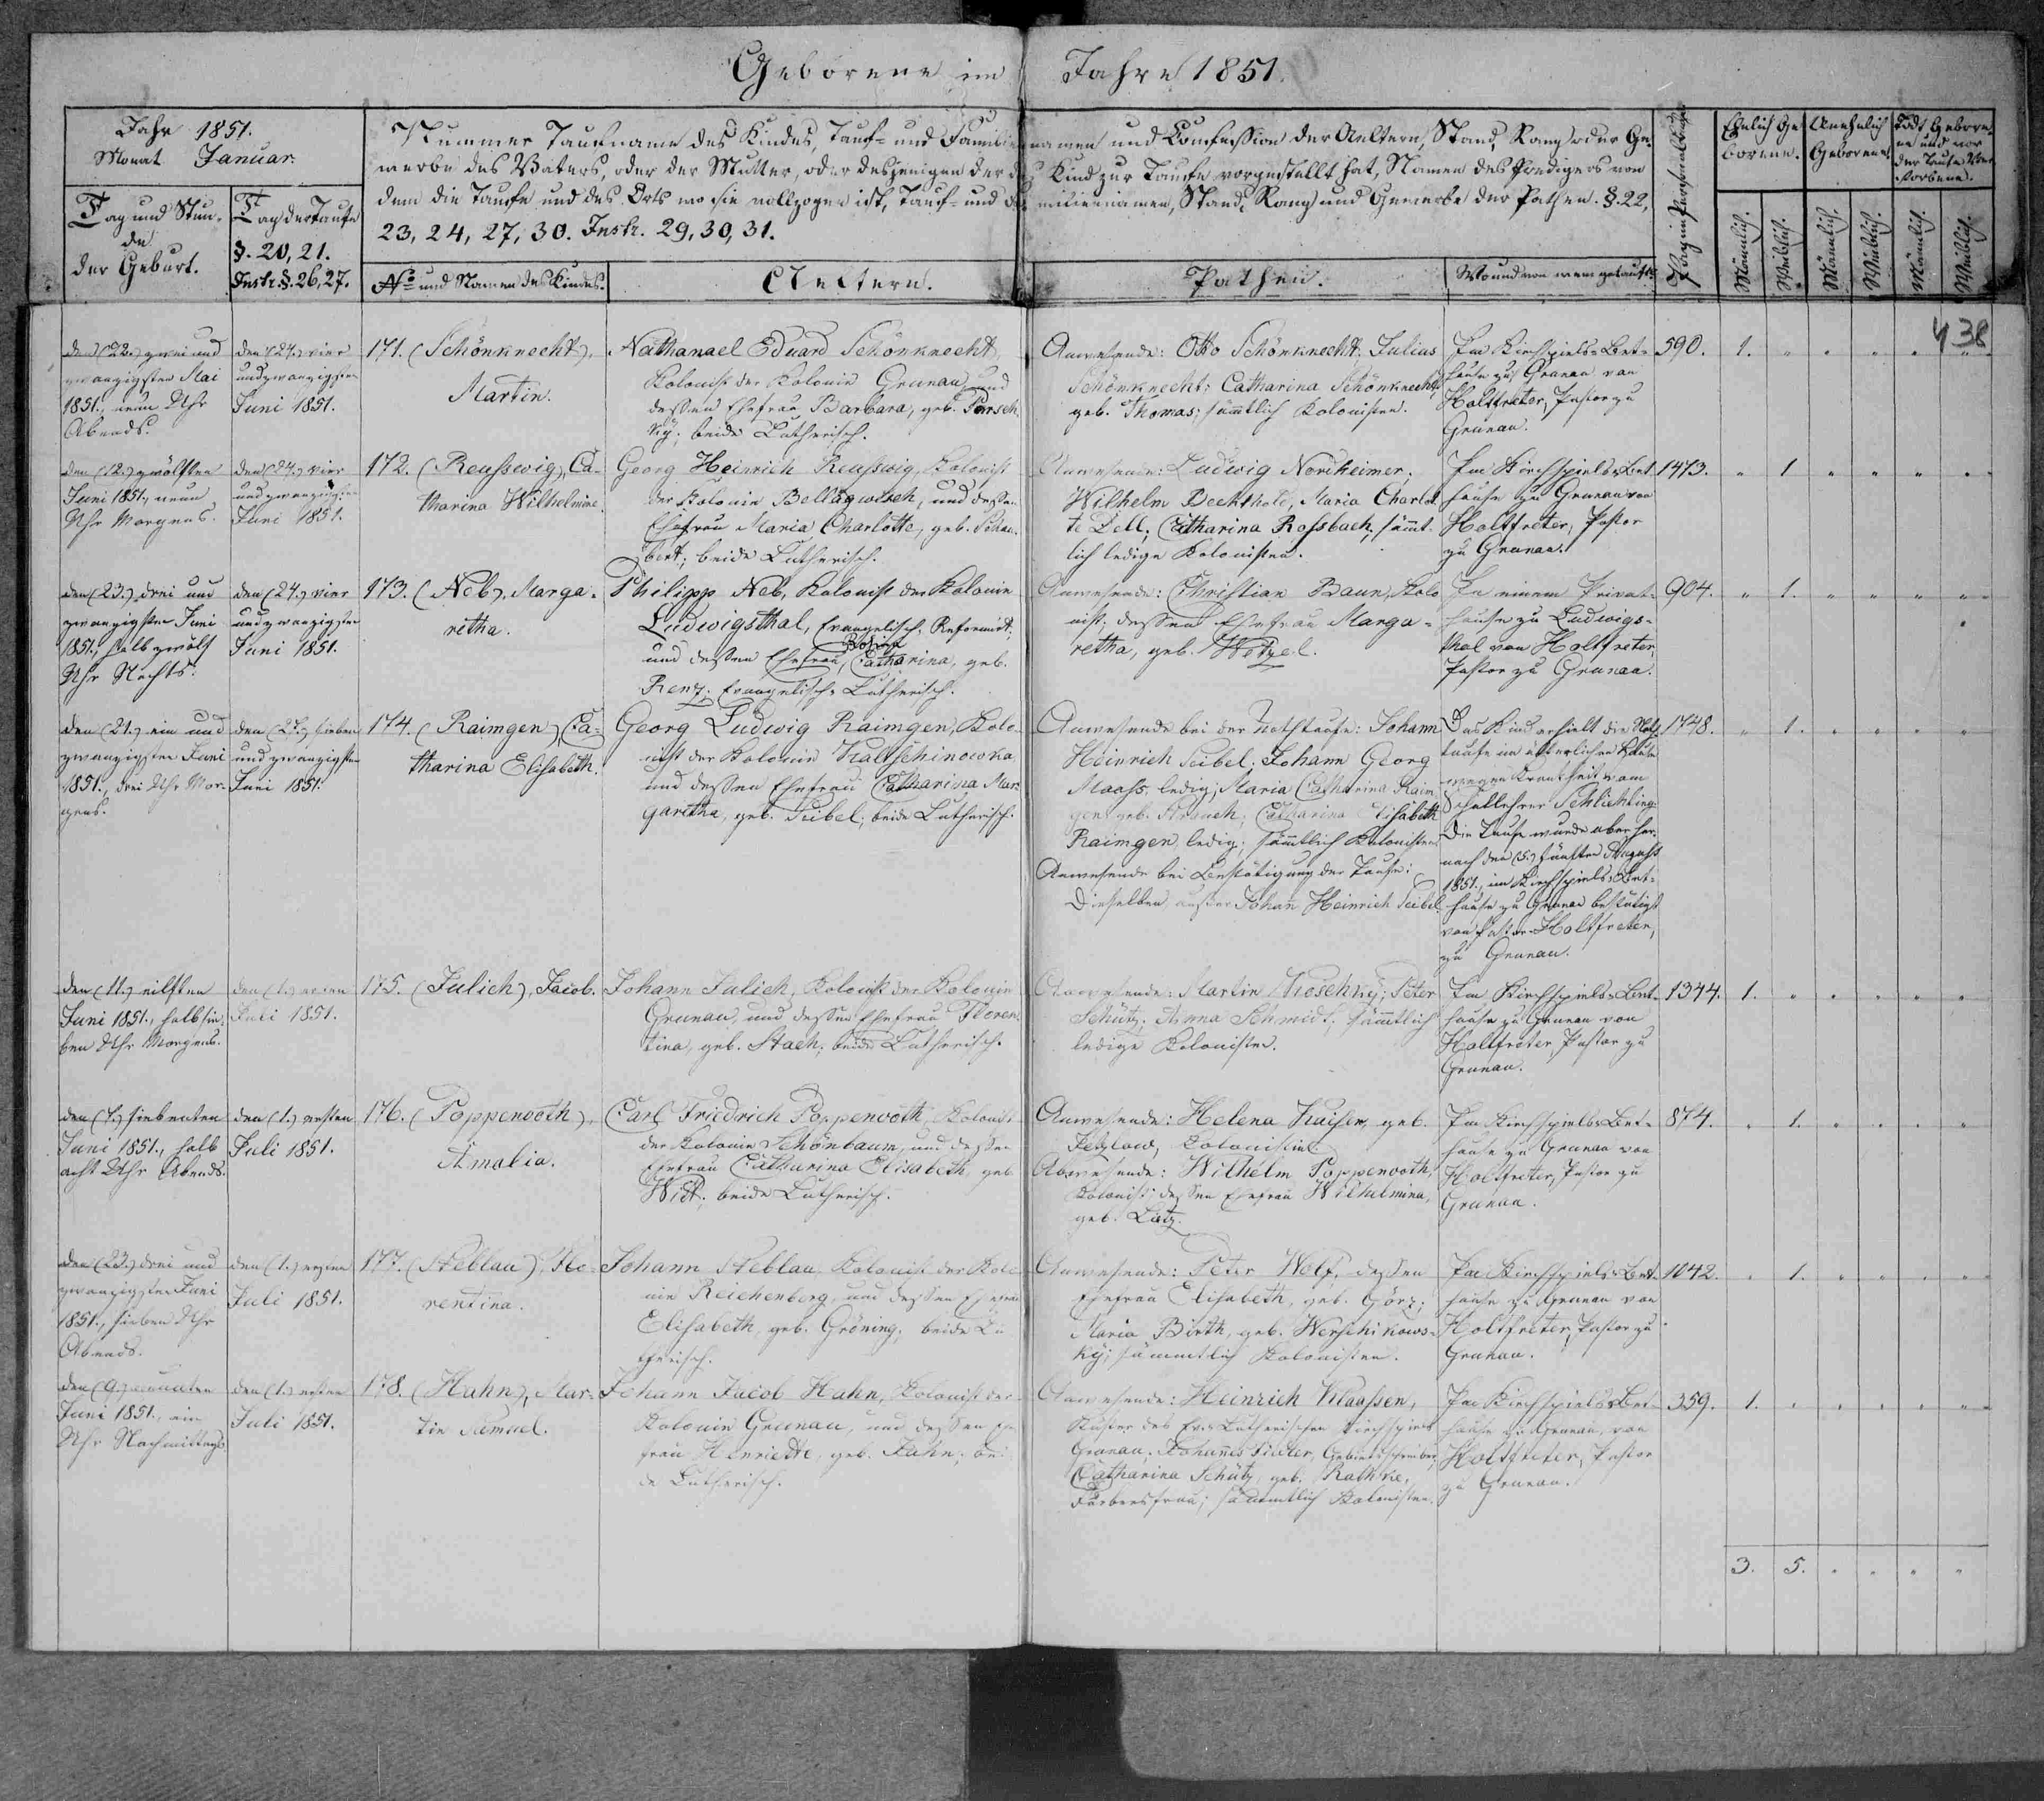 Geborene im Jahre 1851.
Jahr 1851.
Monat Januar.
Tag und Stun-
de
der Geburt.
Tag der Taufe
§. 20, 21.
Instr. §. 26, 27.
Nummer Taufname des Kindes, Tauf- und Familiennamen und Confession der Aeltern, Stand, Rang oder Ge-
werbe des Vaters, oder der Mutter, oder desjenigen der das Kind zur Taufe vorgestellt hat, Namen des Predigers von
dem die Taufe und des Orts wo sie vollzogen ist, Tauf- und Familiennamen, Stand, Rang und Gewerbe der Pathen. §. 22,
23, 24, 27, 30. Instr. 29, 30, 31.
No und Namen des Kindes.
Aeltern.
Pathen.
Wo und von wem getauft.
Pag. im Personalbuche
Ehelich Ge-
borene.
Unehelich
Geborene.
Todt Gebore-
ne und vor
der Taufe Ver-
storbene.
Männlich.
Weiblich.
Männlich.
Weiblich.
Männlich.
Weiblich.
438
den (22.) zwei und
zwanzigsten Mai
1851., neun Uhr
Abends.
den (24.) vier
und zwanzigsten
Juni 1851.
171. (Schönknecht),
Martin.
Nathanael Eduard Schönknecht,
Kolonist der Kolonie Grunau, und
dessen Ehefrau Barbara, geb.
beide Lutherisch.
Anwesende: Otto Schönknecht; Julius
Schönknecht; Catharina Schönknecht,
geb. Thomas; sämtlich Kolonisten.
Im Kirchspiels-Bet-
hause zu Grunau von
Holtfreter, Pastor zu
Grunau.
590. 1.
den (12.) zwölften
Juni 1851., neun
Uhr Morgens.
den (24.) vier
und zwanzigsten
Juni 1851.
172. (Reusswig), Ca-
tharina Wilhelmine.
Georg Heinrich Reusswig, Kolonist
der Kolonie Bellagwesch, und dessen
Ehefrau Maria Charlotte, geb. Schau-
bert; beide Lutherisch.
Anwesende: Ludwig Nordheimer;
Wilhelm Bechthold, Maria Charlot-
te Dell; Catharina Rossbach; sämt-
lich ledige Kolonisten.
Im Kirchspiels-Bet-
hause zu Grunau von
Holtfreter, Pastor
zu Grunau.
1473. 1
den (23.) drei und
zwanzigsten Juni
1851., halb zwölf
Uhr Nachts.
den (24.) vier
und zwanzigsten
Juni 1851.
173. (Neb), Marga-
retha.
Philipp Neb, Kolonist der Kolonie
Ludwigsthal, Evangelisch-Reformirt;
und dessen Ehefrau Catharina, geb.
Renz; Evangelisch-Lutherisch.
Anwesende: Christian Baun, Kolo-
nist; dessen Ehefrau Marga-
retha, geb. Wetzel.
In einem Privat-
hause zu Ludwigs-
thal von Holtfreter,
Pastor zu Grunau.
904. 1.
den (21.) ein und
zwanzigsten Juni
1851., drei Uhr Mor-
gens.
den (27.) sieben
und zwanzigsten
Juni 1851.
174. (Raimgen), Ca-
tharina Elisabeth.
Georg Ludwig Raimgen, Kolo-
nist der Kolonie Kaltschinowka,
und dessen Ehefrau Catharina Mar-
garetha, geb. Seibel; beide Lutherisch.
Anwesende bei der Nothtaufe: Johann
Heinrich Seibel; Johann Georg
Maass, ledig; Maria Catharina Raim-
gen, geb. Catharina Elisabeth
Raimgen, ledig; sämtlich Kolonisten.
Anwesende bei Bestätigung der Taufe:
Dieselben ausser Johann Heinrich Seibel.
Das Kind erhielt die Noth-
taufe im älterlichen Hause
wegen Krankheit vom
Schullehrer Schlichting.
Die Taufe wurde aber her-
nach den (5.) fünften August
1851., im Kirchspiels-Bet-
hause zu Grunau bestätigt
von Pastor Holtfreter,
zu Grunau.
1748. 1.
den (11.) eilften
Juni 1851., halb sie-
ben Uhr Morgens.
den (1.) ersten
Juli 1851.
175. (Julich), Jacob.
Johann Julich, Kolonist der Kolonie
Grunau, und dessen Ehefrau Floren-
tina, geb. Stach; beide Lutherisch.
Anwesende: Martin Peter
Schütz; Anna Schmidt; sämmtlich
ledige Kolonisten.
Im Kirchspiels-Bet-
hause zu Grunau von
Holtfreter, Pastor zu
Grunau.
1344. 1.
den (7.) siebenten
Juni 1851., halb
acht Uhr Abends.
den (1.) ersten
Juli 1851.
176. (Poppenooth),
Amalia.
Carl Friedrich Poppenooth, Kolonist
der Kolonie Schönbaum, und dessen
Ehefrau Catharina Elisabeth, geb.
beide Lutherisch.
Anwesende: Helena Kaiser, geb.
Kolonistin.
Abwesende: Wilhelm Poppenooth,
Kolonist; dessen Ehefrau Wilhelmina,
geb. Lutz.
Im Kirchspiels-Bet-
hause zu Grunau von
Holtfreter, Pastor zu
Grunau.
874. 1.
den (23.) drei und
zwanzigsten Juni
1851., sieben Uhr
Abends.
den (1.) ersten
Juli 1851.
177. (Steblau), Flo-
rentina.
Johann Steblau, Kolonist der Kolo-
nie Reichenberg, und dessen Ehefrau
Elisabeth, geb. Gröning; beide Lu-
therisch.
Anwesende: Peter Wolf, dessen
Ehefrau Elisabeth, geb. Görz;
Maria Birth, geb. Werschikows-
ky; sämmtlich Kolonisten.
Im Kirchspiels-Bet-
hause zu Grunau von
Holtfreter, Pastor zu
Grunau.
1042. 1.
den (9.) neunten
Juni 1851., ein
Uhr Nachmittags.
den (1.) ersten
Juli 1851.
178. (Hahn), Mar-
tin Samuel.
Johann Jacob Hahn, Kolonist der
Kolonie Grunau, und dessen Ehe-
frau Henriette, geb. Jahn; bei-
de Lutherisch.
Anwesende: Heinrich Klaassen,
Küster des Ev. Lutherischen Kirchspiels
Grunau; Johannes Gebietsschreiber;
Catharina Schütz, geb. Rathke,
Färbersfrau; sämmtlich Kolonisten.
Im Kirchspiels-Bet-
hause zu Grunau, von
Holtfreter, Pastor
zu Grunau.
359. 1.
3. 5.